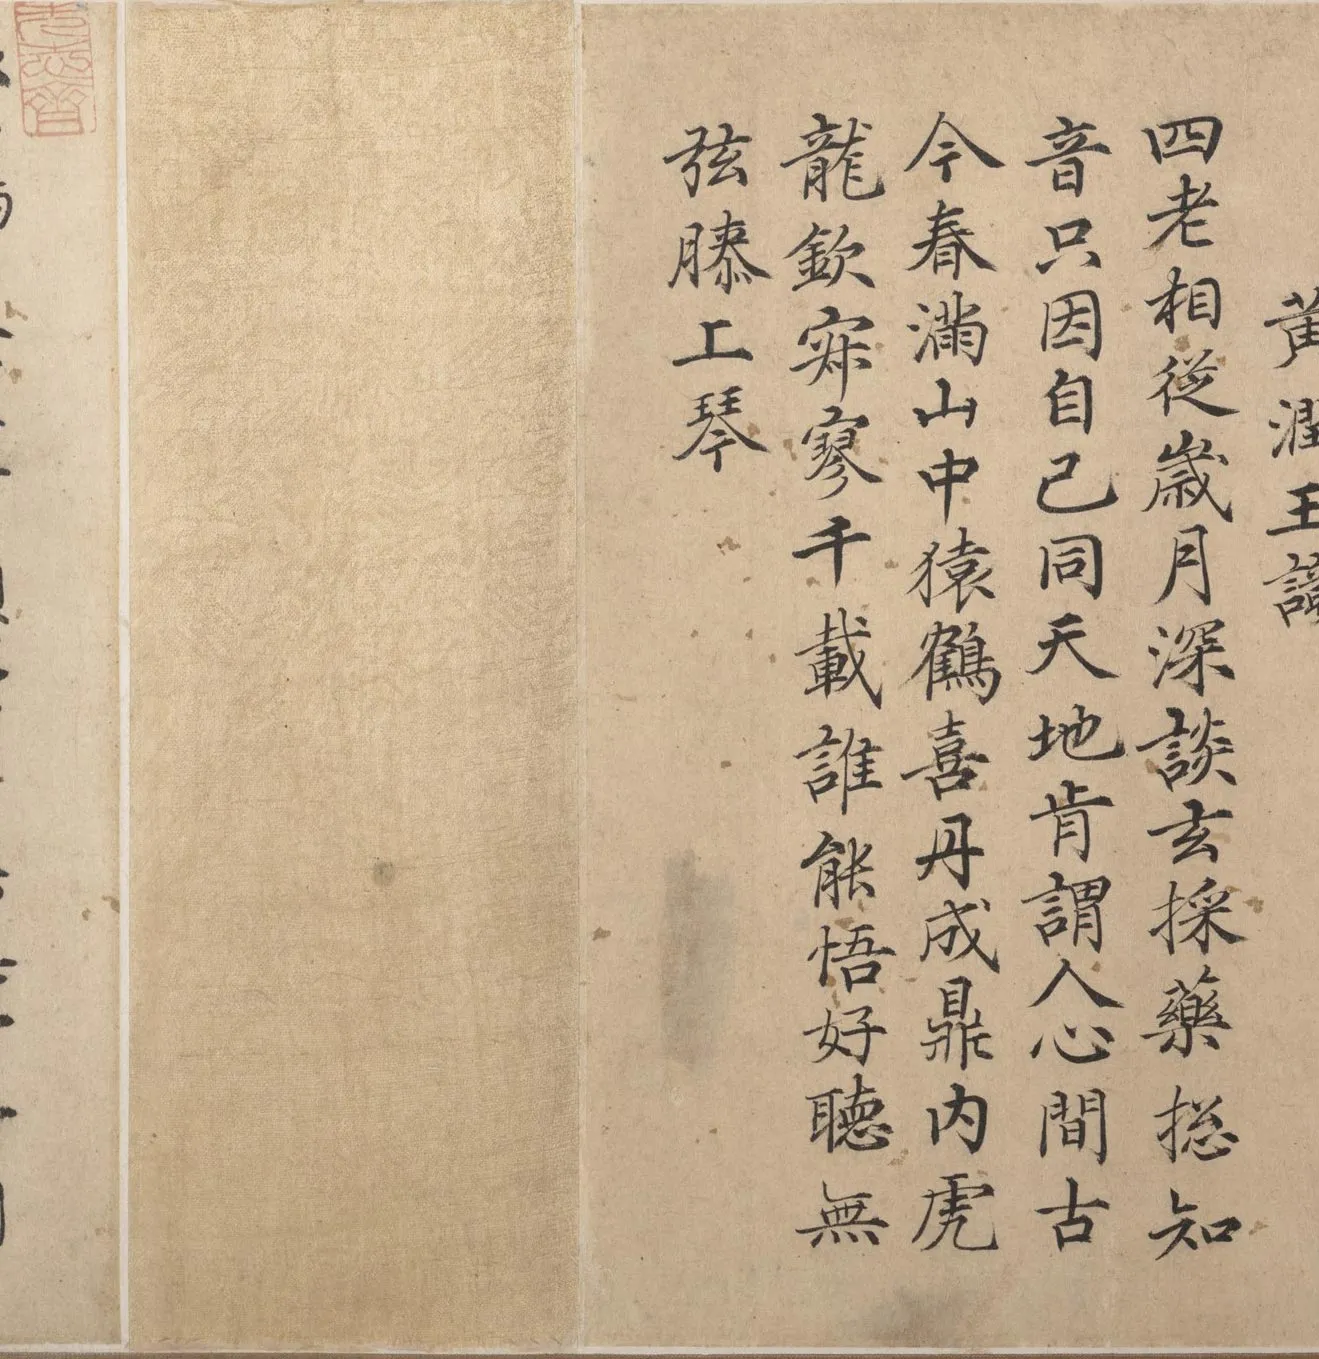 黄潤玉謹
四老相從歲月深談玄採藥捴知
音只因自己同天地肯謂人心間古
今春滿山中猿鶴喜丹成鼎内虎
龍欽寂寥千載誰能悟好聽無
弦膝上琴